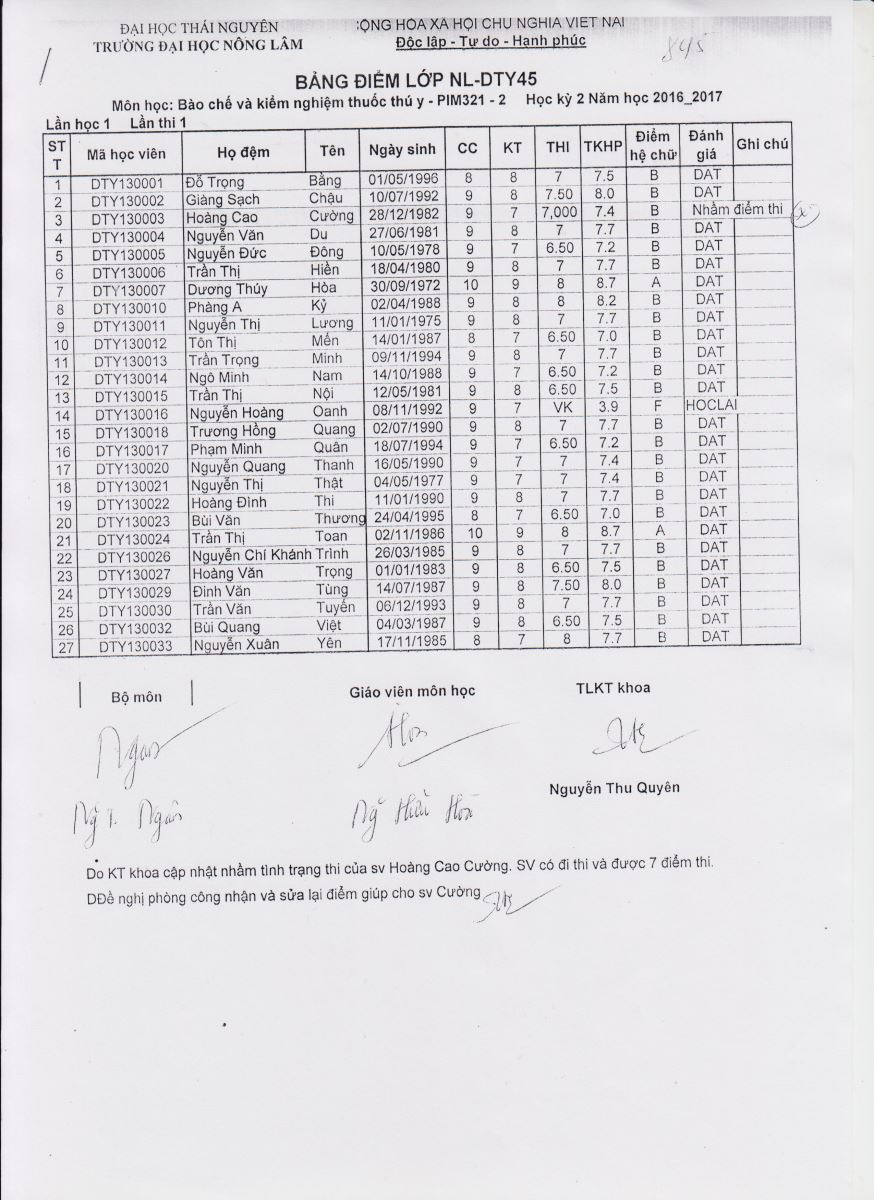 ĐẠI HỌC THÁI NGUYÊN
TRƯỜNG ĐẠI HỌC NÔNG LÂM
ỌNG HOA XA HỌI CHU NGHIA VIET NAI
Độc lập - Tự do - Hạnh phúc
845
BẢNG ĐIỂM LỚP NL-DTY45
Môn học: Bào chế và kiểm nghiệm thuốc thú y - PIM321 - 2 Học kỳ 2 Năm học 2016_2017
Lần học 1 Lần thi 1
STT Mã học viên Họ đệm Tên Ngày sinh CC KT THI TKHP Điểm hệ chữ Đánh giá Ghi chú
1 DTY130001 Đỗ Trọng Bằng 01/05/1996 8 8 7 7.5 B DAT
2 DTY130002 Giàng Sạch Chậu 10/07/1992 9 8 7.50 8.0 B DAT
3 DTY130003 Hoàng Cao Cường 28/12/1982 9 7 7,000 7.4 B Nhầm điểm thi
4 DTY130004 Nguyễn Văn Du 27/06/1981 9 8 7 7.7 B DAT
5 DTY130005 Nguyễn Đức Đông 10/05/1978 9 7 6.50 7.2 B DAT
6 DTY130006 Trần Thị Hiền 18/04/1980 9 8 7 7.7 B DAT
7 DTY130007 Dương Thúy Hòa 30/09/1972 10 9 8 8.7 A DAT
8 DTY130010 Phàng A Kỷ 02/04/1988 9 8 8 8.2 B DAT
9 DTY130011 Nguyễn Thị Lương 11/01/1975 9 8 7 7.7 B DAT
10 DTY130012 Tôn Thị Mến 14/01/1987 8 7 6.50 7.0 B DAT
11 DTY130013 Trần Trọng Minh 09/11/1994 9 8 7 7.7 B DAT
12 DTY130014 Ngô Minh Nam 14/10/1988 9 7 6.50 7.2 B DAT
13 DTY130015 Trần Thị Nội 12/05/1981 9 8 6.50 7.5 B DAT
14 DTY130016 Nguyễn Hoàng Oanh 08/11/1992 9 7 VK 3.9 F HOCLAI
15 DTY130018 Trương Hồng Quang 02/07/1990 9 8 7 7.7 B DAT
16 DTY130017 Phạm Minh Quân 18/07/1994 9 7 6.50 7.2 B DAT
17 DTY130020 Nguyễn Quang Thanh 16/05/1990 9 7 7 7.4 B DAT
18 DTY130021 Nguyễn Thị Thật 04/05/1977 9 7 7 7.4 B DAT
19 DTY130022 Hoàng Đình Thi 11/01/1990 9 8 7 7.7 B DAT
20 DTY130023 Bùi Văn Thương 24/04/1995 8 7 6.50 7.0 B DAT
21 DTY130024 Trần Thị Toan 02/11/1986 10 9 8 8.7 A DAT
22 DTY130026 Nguyễn Chí Khánh Trình 26/03/1985 9 8 7 7.7 B DAT
23 DTY130027 Hoàng Văn Trọng 01/01/1983 9 8 6.50 7.5 B DAT
24 DTY130029 Đinh Văn Tùng 14/07/1987 9 8 7.50 8.0 B DAT
25 DTY130030 Trần Văn Tuyển 06/12/1993 9 8 7 7.7 B DAT
26 DTY130032 Bùi Quang Việt 04/03/1987 9 8 6.50 7.5 B DAT
27 DTY130033 Nguyễn Xuân Yên 17/11/1985 8 7 8 7.7 B DAT
Bộ môn Giáo viên môn học TLKT khoa
Ngân Hoa
Nguyễn Thu Quyên
Ng T. Ngân Ng Hải Hòa
Do KT khoa cập nhật nhầm tình trạng thi của sv Hoàng Cao Cường. SV có đi thi và được 7 điểm thi.
DĐề nghị phòng công nhận và sửa lại điểm giúp cho sv Cường